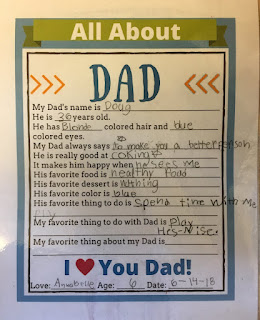 All About
DAD
My Dad's name is Doug
He is 36 years old.
He has Blonde colored hair and blue
colored eyes.
My Dad always says to make you a better person
He is really good at coking
It makes him happy when he sees me
His favorite food is healthy food
His favorite dessert is Nothing
His favorite color is blue
His favorite thing to do is spend time with me
My favorite thing to do with Dad is Play
My favorite thing about my Dad is He's Nise.
I ❤ You Dad!
Love: Annabelle Age: 6 Date: 6-14-18